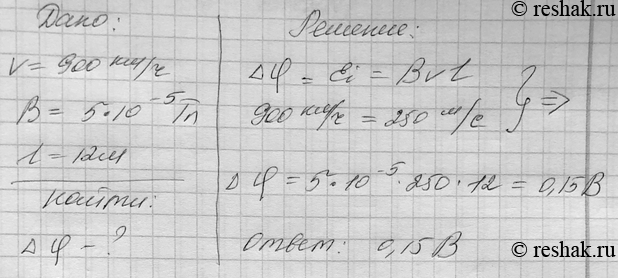 © reshak.ru
Дано:
v = 900 км/ч
B = 5·10⁻⁵ Тл
l = 12м
Найти:
Δφ - ?
Решение:
Δφ = Ei = Bvl
900 км/ч = 250 м/с } ⇒
Δφ = 5·10⁻⁵·250·12 = 0,15В
Ответ: 0,15В
© reshak.ru